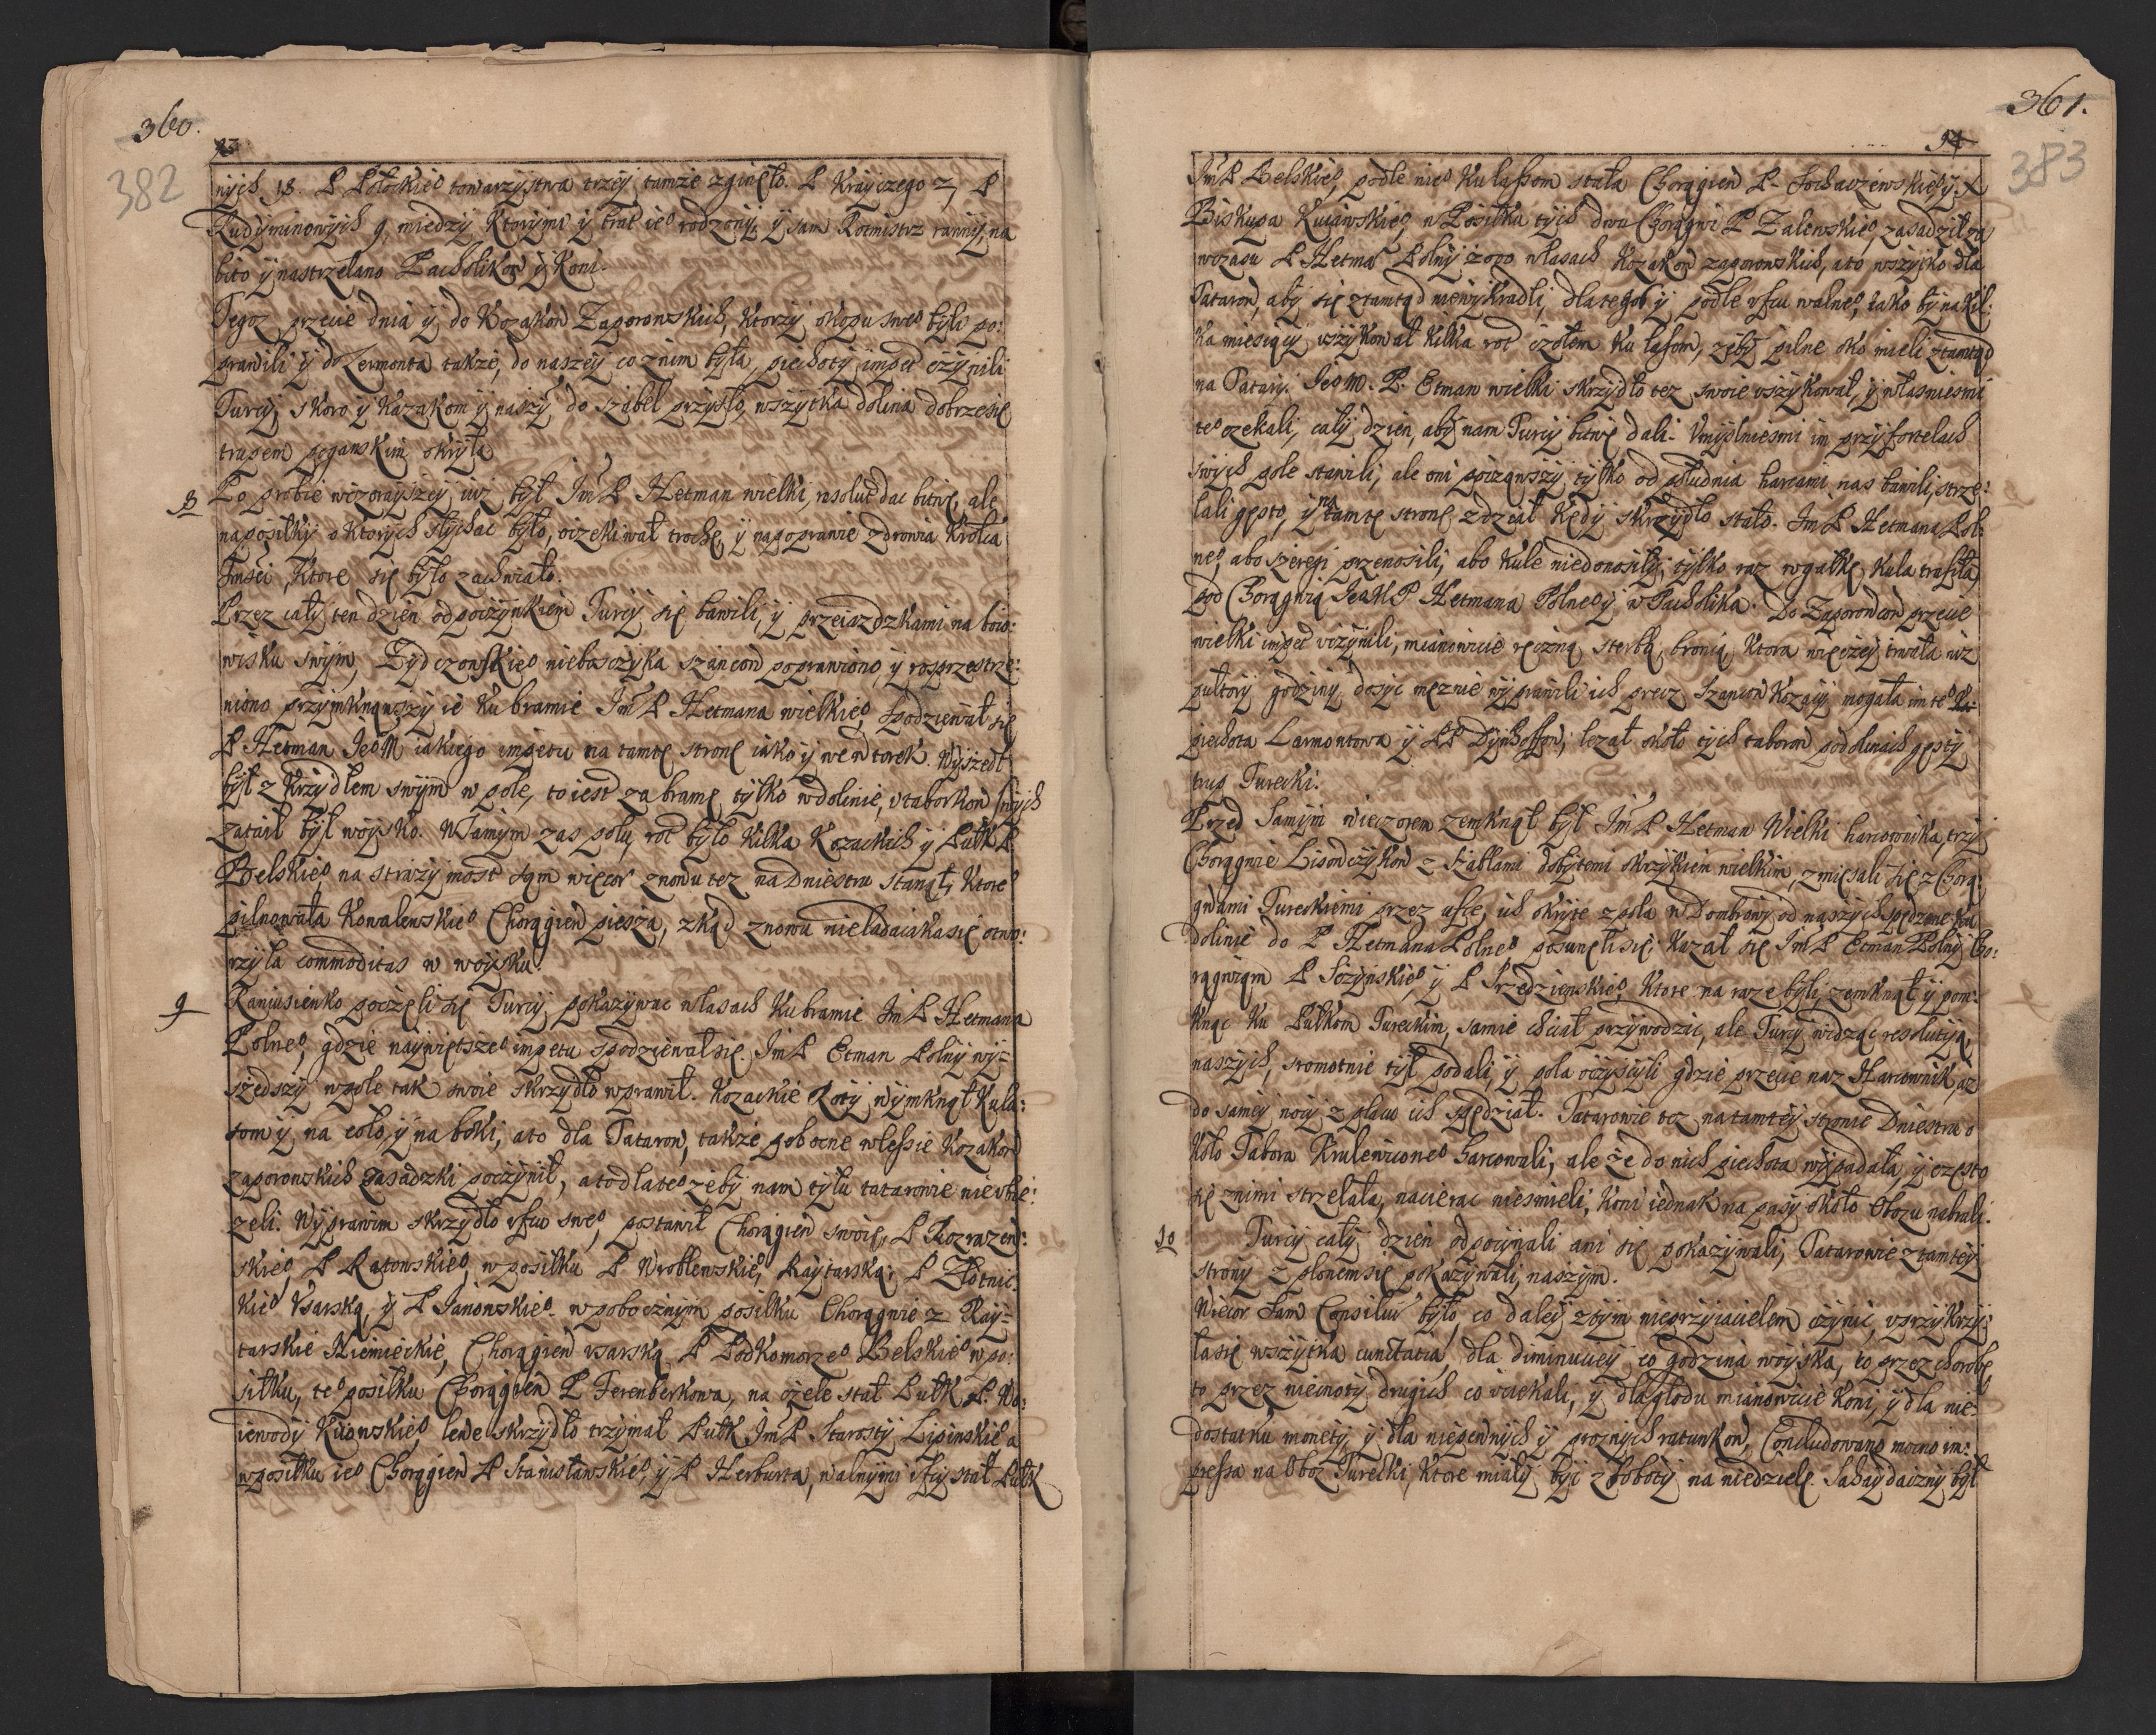 360.
93
382
nÿch 18. P Potockie° towarzÿstwa trzeÿ tamze zginęło. P Kraÿczego 2, P
Rudÿminowÿch 9, miedzÿ Ktorÿmi ÿ brat ie° rodzonÿ, ÿ sam Rotmistrz rannÿ, na
bito ÿ nastrzelano Pacholikow ÿ Koni.
Tegoz przecie dnia ÿ do Kozakow Zaporowskich, Ktorzÿ okopu swe° bÿli po:
prawili ÿ do Lermonta takze, do naszeÿ co znim bÿła, piechotÿ impet czÿnili
Turcÿ, skoro ÿ Kazakom ÿ naszÿ do szabel przÿszło, wszÿtka dolina dobrze się
trupem poganskim okrÿła
8 Po probie wczoraÿszeÿ iuz bÿł Im P Hetman wielki, resolut dac bitwę, ale
na posiłkÿ o Ktorÿch słÿchac bÿło, oczekiwał trochę, ÿ na poprawie zdrowia Krolca
Imści, Ktore się bÿło zachwiało.
Przez całÿ ten dzien odpoczÿnkiem Turcÿ się bawili, ÿ przeiazdzkami na boio:
wisku swÿm, Zÿdczowskie° nieboszczÿka szancow poprawiono, ÿ rosprzestrze:
niono przÿmknąwszÿ ie Ku bramie Im P Hetmana wielkie°, spodziewał się
P Hetman Ie° M iakiego impetu na tamtę stronę iako ÿ we wtorek. Wÿszedł
bÿł z Krzÿdłem swÿm w pole, to iest za bramę tÿlko w dolinie, v taborkow swÿch
zataił bÿł woÿsko. W samÿm zas polu, rot bÿło Kilka Kozackich ÿ Pułk P
Belskie° na strazÿ most sąm więcor znowu tez na Dniestru stanął, Ktore°
pilnowała Kowalewskie° Chorągien piesza, zkąd znowu nieladaiaka się otwo:
rzÿła commoditas w woÿsku.
9 Raniusienko poczęli się Turcÿ pokazÿwac w lasach Ku bramie Im P Hetmana
Polne°, gdzie naÿwiętsze° impetu spodziewał się. Im P Etman Polnÿ wÿ=
szedszÿ w pole tak swoie skrzÿdło wprawił. Kozackie Rotÿ wÿmknął Ku la:
som ÿ na coło, ÿ na boki, a to dla Tatarow, takze pobocne w lessie Kozakow
zaporowskich zasadzki poczÿnił, a to dlate° zebÿ nam tÿłu tatarowie nie vbie:
zeli. Wÿprawim skrzÿdło vfcu swe°, postawił Chorągien swoię, P Rozrazew:
skie°, P Rątowskie°, w posiłku P Wroblewskie°, Raÿtarską; P Złotnic
kie° Vsarską, ÿ P Janowskie°. w pobocznÿm posiłku Chorągwie 2 Raÿ=
tarskie Niemieckie, Chorągien vsarską P Podkomorze° Belskie° w po:
siłku, te° posiłku Chorągien P Ferenberkowa, na czele stał Pułk P. Wo:
iewodÿ Kiiowskie°, lewe skrzÿdło trzÿmał Pułk Im P. Starostÿ Lipinskie°
w posiłku ie° Chorągien P Stanisławskie°, ÿ P Herburta, walnÿmi vfcÿ stał Pułk
361.
94
383
Im P Belskie°, podle nie° Ku lassom stała Chorągien P. Sochaczewskie° ÿ X
Biskupa Kuiawskie°, w Posiłku tÿch dwu Chorągwi P Zalewskie°, zasadził za
wczasu P Hetma Polnÿ zopo w lasach Kozakow zaporowskich, a to wszÿtko dla
Tatarow, abÿ się ztamtąd niewÿkradli, dlategoz ÿ podle vfcu walne°, iako bÿ na Kil:
ka miesięcÿ vszÿkował Kilka rot czołem Ku lasom, zębÿ pilne oko mieli ztamtąd
na Tatarÿ. Ie° M. P. Etman wielki skrzÿdło tez swoie vszÿkował, ÿ własniesmi
te° czekali, całÿ dzien, abÿ nam Turcÿ bitwę dali. Vmÿslniesmi im przÿ fortelach
swÿch pole stawili, ale oni począwszÿ tÿlko od południa harcami nas bawili, strze:
lali gęsto, ÿ na tamtę stronę z dział Kędÿ skrzÿdło stało. Im P Hetmana Pol:
ne°, abo szeregi przenosili, abo Kule niedonosiłÿ; tÿlko raz w gałkę Kula trafiła,
pod Chorągwią Ie° M P Hetmana Polne° ÿ w Pacholika. Do Zaporowcow przecie
wielki impet vczÿnili, mianowicie ręczną strelbą bronią, Ktora więczeÿ trwała niz
pułtorÿ godzinÿ, dosÿc męznie wÿprawili ich precz szancow Kozacÿ mogała im te°
piechota Larmontowa ÿ PP Dÿnhoffow; lezał około tÿch taborow po dolinach gęstÿ
trup Turecki:
Przed Samÿm wieczorem zemknął bÿł Im P Hetman Wielki harcownika, trzÿ
Chorągwie Lisowczÿkow z szablami dobÿtemi okrzÿkiem wielkim, zmięsali się z Chorą:
gwiami Tureckiemi przez vfce, ich okrÿte z pola w Dombrowÿ, od naszÿch spędzone ku
dolinie do P Hetmana Polne° posunęli się. Kazał się Im P Etman Polnÿ Cho:
rągwiąm P Sczÿnskie°, ÿ P Srzedzienskie°, Ktore na razie bÿli zemknął ÿ pom=
knąc Ku Pułkom Tureckim, samie chciał przÿwodzic, ale Turcÿ widząc resolutią
naszÿch, sromotnie tÿł podali, ÿ pola oczÿscÿli gdzie przecie nasz Harcownik, az
do sameÿ nocÿ z placu ich spędział. Tatarowie tez na tamteÿ stronie Dniestru o
Koło Tabora Krulewicowe° harcowali, ale że do nich piechota wÿpadała, ÿ często
się znimi strzelała, nacierac niesmieli, Koni iednak na pasÿ około Obozu nabrali.
10 Turcÿ całÿ dzien odpocÿnali ani się pokazÿwali, Tatarowie ztamteÿ
stronÿ z plonem się pokazÿwali, naszÿm.
Wiecor sam Consiliu bÿło, co daleÿ z tÿm nieprzÿiacielem czÿnic, vprzÿkrzÿ:
ła się wszÿtka cunctatia, dla diminucieÿ co godzina woÿska, to przez chorobę
to przez niecnotÿ drugich co vciekali, ÿ dla głodu mianowicie Koni, ÿ dla nie:
dostatku monetÿ, ÿ dla niepewnÿch ÿ proznÿch ratunkow, Concludowano mocno im:
pressa na Oboz Turecki, Ktore miałÿ bÿc z sobotÿ na niedzielę. Sahaÿdacznÿ bÿł